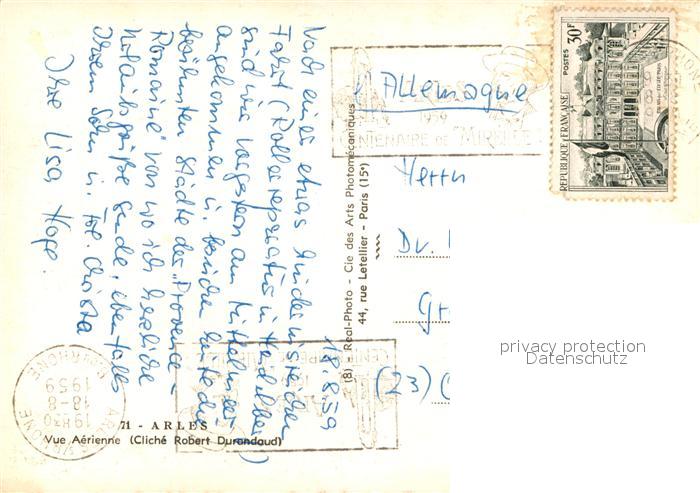 18.8.59
Nach einer etwas hindernisreichen
Fahrt (Rollereparatur in Heidelberg)
sind wir vorgestern am Mittelmeer
angekommen u. besuchen heute die
berühmten Städte der "Provence
Romaine" von wo ich herzliche
Urlaubsgrüße sende, ebenfalls
Ihrem Sohn u. Frl. Christa
Ihre Lisa Hoge.
71 - ARLES
Vue Aérienne (Cliché Robert Durandaud)
(8) Real-Photo - Cie des Arts Photomécaniques
44, rue Letellier - Paris (15e)
Allemagne
Herrn
Dv.
(23)
30F
POSTES
REPUBLIQUE FRANÇAISE
1959
CENTENAIRE DE "MIREILLE"
19H30
18-8
1959
privacy protection
Datenschutz